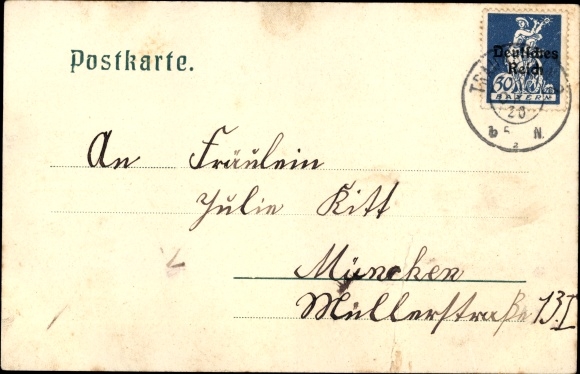 Postkarte.
Deutsches
Reich
30
BAYERN
20
N.
An Fräulein
Julie Kitt
München
Müllerstraße 13.I